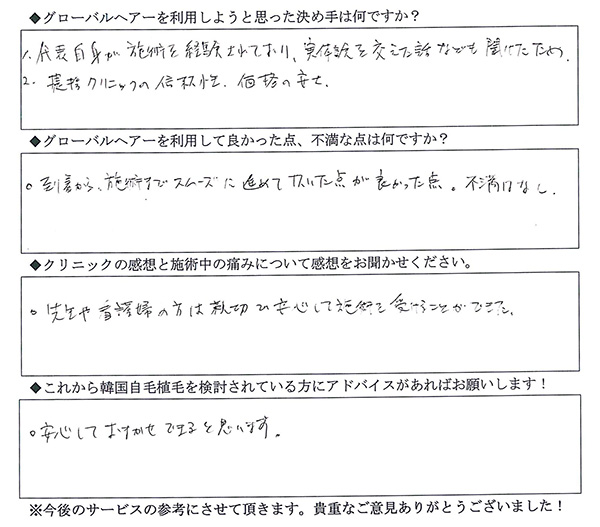 ◆グローバルヘアーを利用しようと思った決め手は何ですか?
1. 代表自身が施術を経験されており、実体験を交えた話なども聞けたため.
2. 提携クリニックの信頼性. 価格の安さ.
◆グローバルヘアーを利用して良かった点、不満な点は何ですか?
○ 到着から、施術までスムーズに進めて頂いた点が良かった点。不満はなし.
◆クリニックの感想と施術中の痛みについて感想をお聞かせください。
○ 先生や看護婦の方は親切で安心して施術を受けることができた.
◆これから韓国自毛植毛を検討されている方にアドバイスがあればお願いします!
○安心しておまかせできると思います。
※今後のサービスの参考にさせて頂きます。貴重なご意見ありがとうございました!